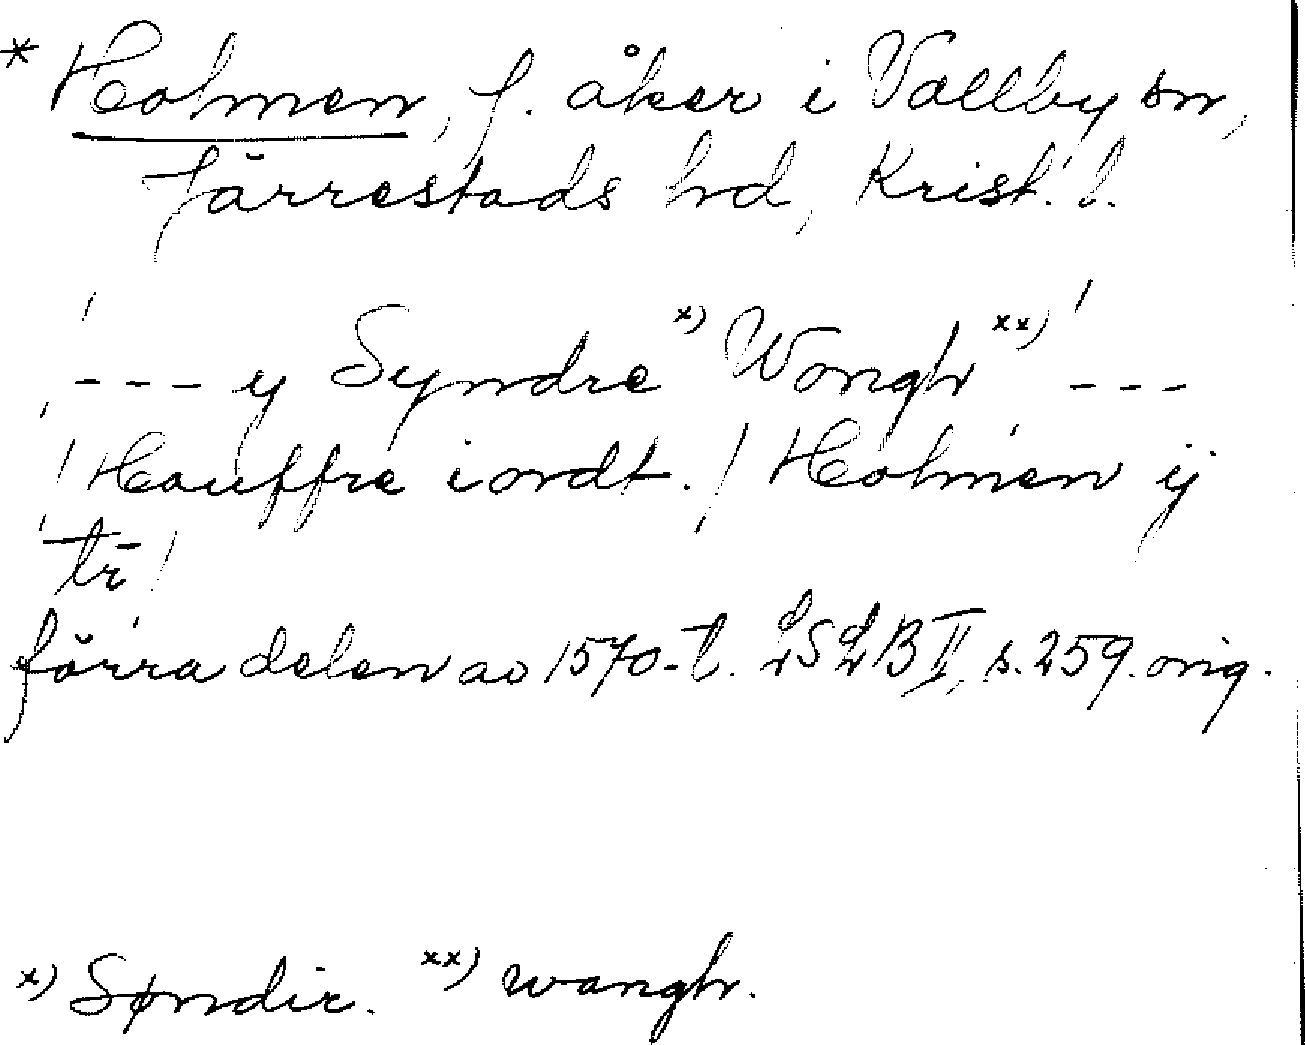 * Holmen, f. åker i Vallby sn,
Järrestads hd, Krist. l.
--- y Syndre x) Wongh xx) ---
/ Hauffre iordt. / Holmen ij
tr̄ /
förra delen av 1570-t. LSLB II, s. 259. orig.
x) Søndir. xx) wangh.